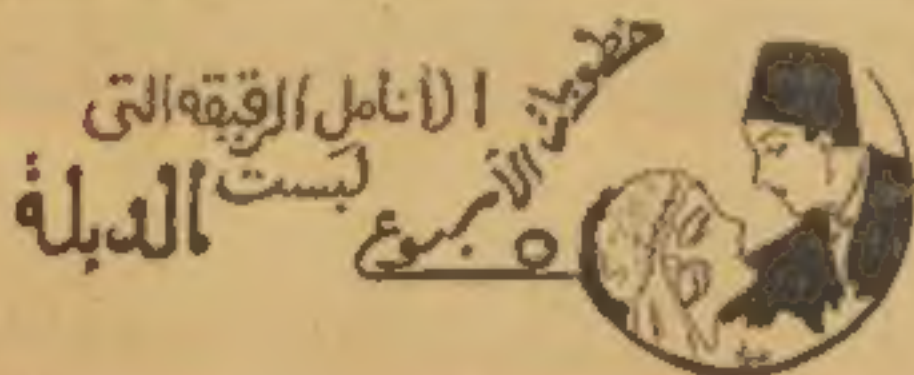 خطوبة الأسبوع
الأنامل الرقيقه التى
لبست الدبلة